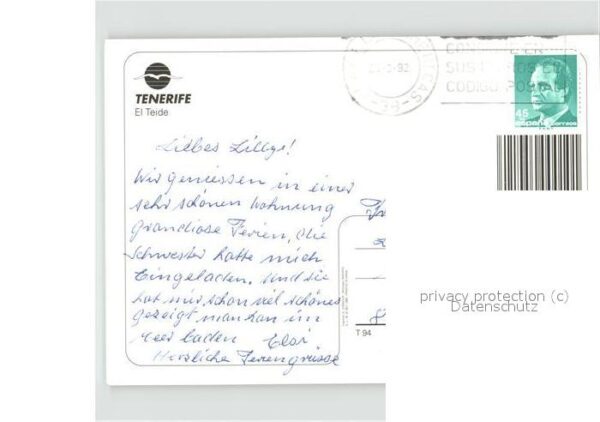 TENERIFE
El Teide
-92
CODIGO POSTAL
45
Liebes Lillge!
Wir geniessen in einer
sehr schönen Wohnung
grandiose Ferien, die
Schwester hatte mich
Eingeladen. und sie
hat mir schon viel schönes
gezeigt man kan im
meer baden
Herzliche Feriengrüsse
T 94
privacy protection (c)
Datenschutz